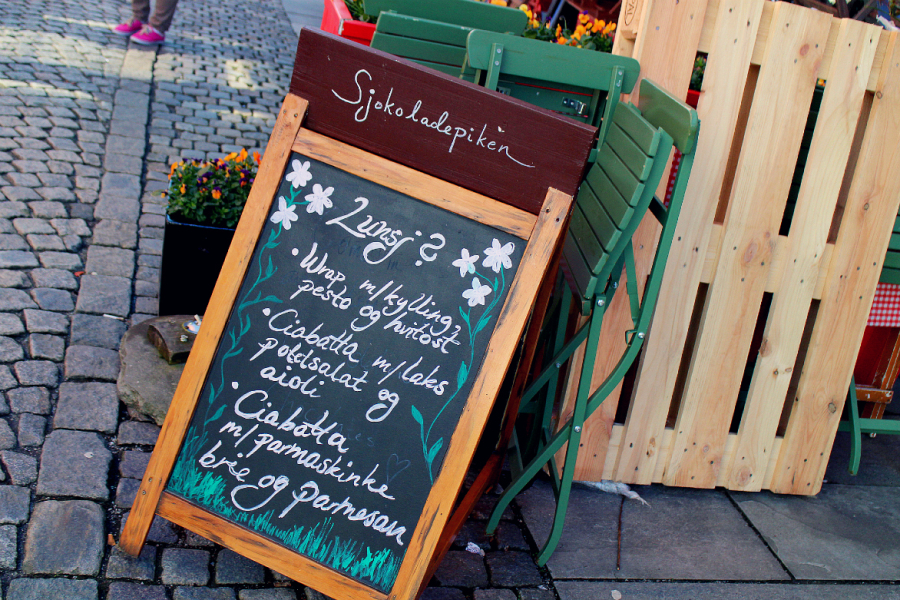 Sjokoladepiken
Lunsj?
• Wrap m/kylling,
pesto og hvitost
• Ciabatta m/laks
potetsalat og
aioli
• Ciabatta
m/parmaskinke
brie og parmesan